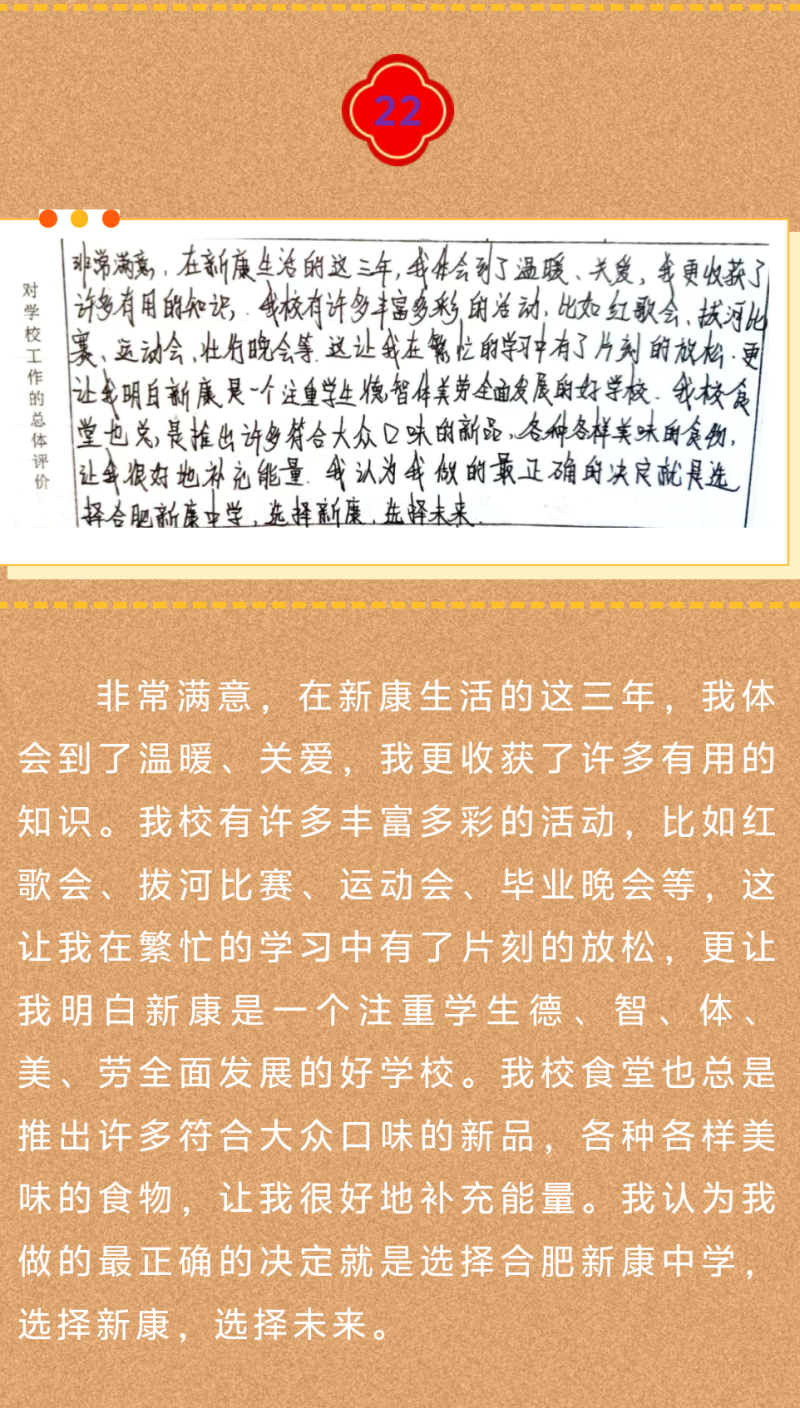 22
对学校工作的总体评价
非常满意，在新康生活的这三年，我体会到了温暖、关爱，我更收获了
许多有用的知识。我校有许多丰富多彩的活动，比如红歌会、拔河比
赛、运动会、壮行晚会等，这让我在繁忙的学习中有了片刻的放松，更
让我明白新康是一个注重学生德智体美劳全面发展的好学校。我校食
堂也总是推出许多符合大众口味的新品，各种各样美味的食物，
让我很好地补充能量。我认为我做的最正确的决定就是选
择合肥新康中学，选择新康，选择未来。
非常满意，在新康生活的这三年，我体
会到了温暖、关爱，我更收获了许多有用的
知识。我校有许多丰富多彩的活动，比如红
歌会、拔河比赛、运动会、毕业晚会等，这
让我在繁忙的学习中有了片刻的放松，更让
我明白新康是一个注重学生德、智、体、
美、劳全面发展的好学校。我校食堂也总是
推出许多符合大众口味的新品，各种各样美
味的食物，让我很好地补充能量。我认为我
做的最正确的决定就是选择合肥新康中学，
选择新康，选择未来。